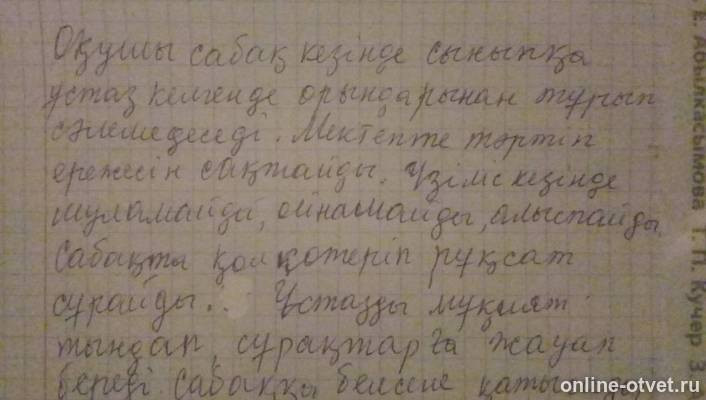 Оқушы сабақ кезінде сыныпқа
ұстаз келгенде орындарынан тұрып
сәлемдеседі. Мектепте тәртіп
ережесін сақтайды. Үзіліс кезінде
шуламайды, ойнамайды, алыспайды
Сабақта қол көтеріп рұқсат
сұрайды... Ұстазды мұқият
тыңдап, сұрақтарға жауап
береді сабаққа белсене
online-otvet.ru
Е. Абылкасымова Т. П. Кучер З